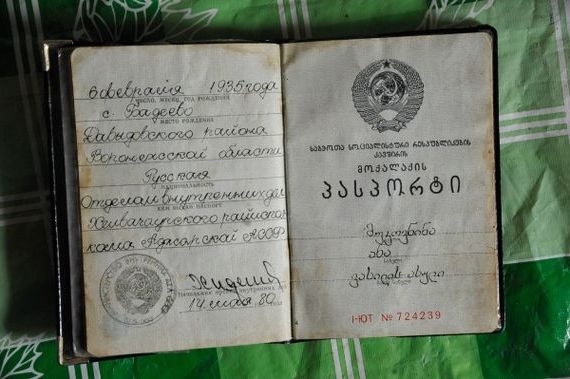 6 февраля 1935 года
число, месяц, год рождения
с. Бадеево
место рождения
Давыдовского района
Воронежской области
Русская
национальность
Отделом внутренних дел
кем выдан паспорт
Хелвачаурского райиспол
кома Аджарской АССР
14 мая 80
ᲡᲐᲑᲭᲝᲗᲐ ᲡᲝᲪᲘᲐᲚᲘᲡᲢᲣᲠᲘ ᲠᲔᲡᲞᲣᲑᲚᲘᲙᲔᲑᲘᲡ
ᲙᲐᲕᲨᲘᲠᲘᲡ
ᲛᲝᲥᲐᲚᲐᲥᲘᲡ
ᲞᲐᲡᲞᲝᲠᲢᲘ
ანა
სახელი
ვასილის ასული
I-ЮТ № 724239